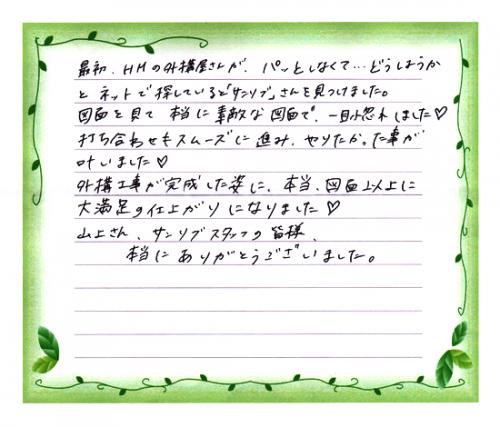 最初、HMの外構屋さんが、パッとしなくて…どうしようか
と ネットで探していると「サンリブ」さんを見つけました。
図面を見て 本当に素敵な図面で、一目惚れしました♡
打ち合わせもスムーズに進み、やりたかった事が
叶いました♡
外構工事が完成した姿に、本当、図面以上に
大満足の仕上がりになりました♡
山上さん、サンリブスタッフの皆様、
本当にありがとうございました。